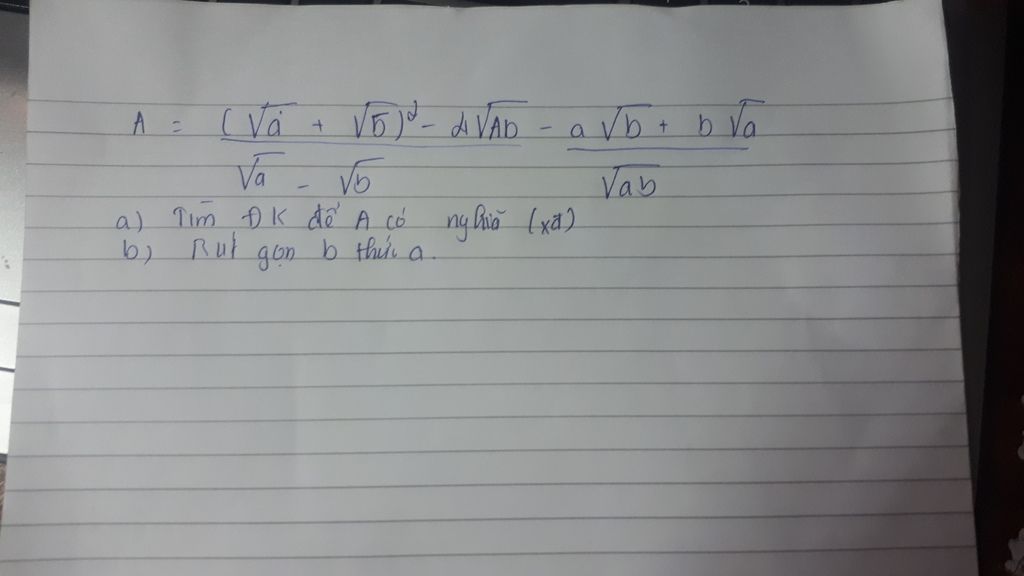 A = (√a + √b)² - 4√Ab - a√b + b√a
√a - √b √ab
a) Tìm ĐK để A có nghĩa (xđ)
b) Rút gọn b thức a.